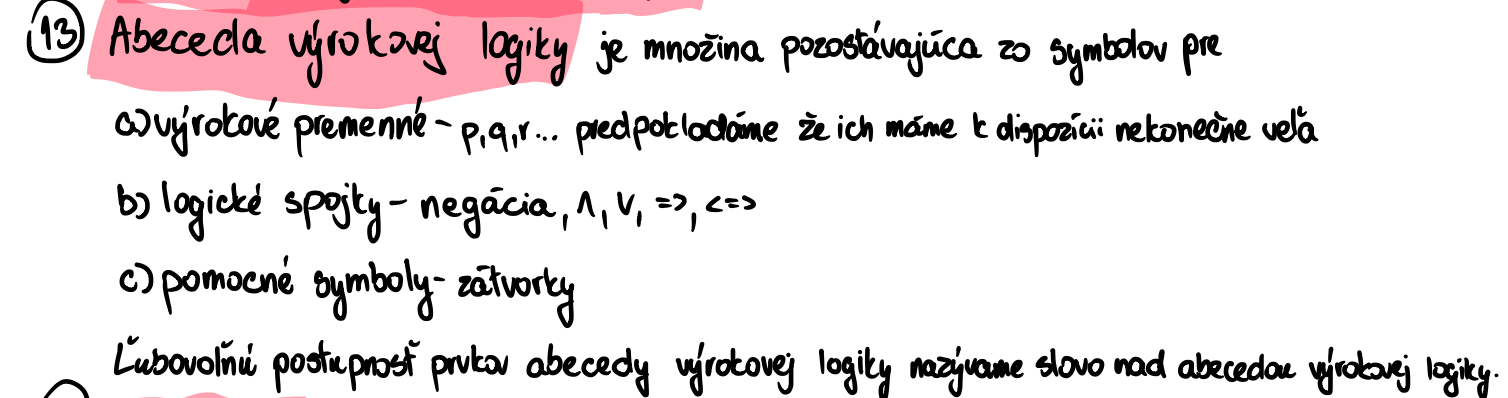 13 Abeceda výrokovej logiky je množina pozostávajúca zo symbolov pre
a) výrokové premenné - p, q, r... predpokladáme že ich máme k dispozícii nekonečne veľa
b) logické spojky - negácia, ∧, ∨, =>, <=>
c) pomocné symboly - zátvorky
Ľubovoľnú postupnosť prvkov abecedy výrokovej logiky nazývame slovo nad abecedou výrokovej logiky.